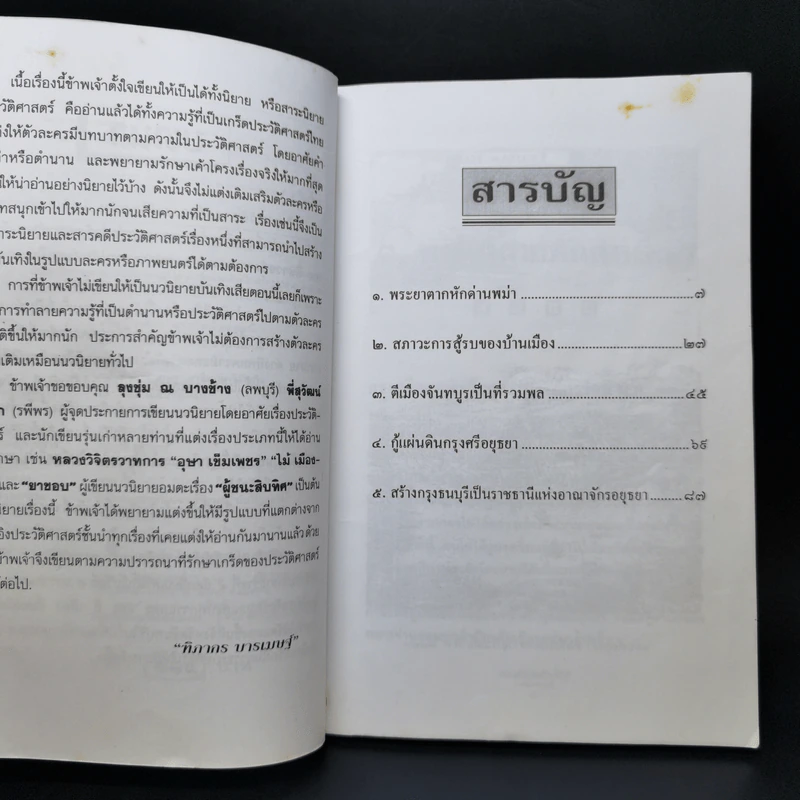 เนื้อเรื่องนี้ข้าพเจ้าตั้งใจเขียนให้เป็นได้ทั้งนิยาย หรือสาระนิยาย
วัติศาสตร์ คืออ่านแล้วได้ทั้งความรู้ที่เป็นเกร็ดประวัติศาสตร์ไทย
ให้ตัวละครมีบทบาทตามความในประวัติศาสตร์ โดยอาศัยคำ
หรือตำนาน และพยายามรักษาเค้าโครงเรื่องจริงให้มากที่สุด
ให้น่าอ่านอย่างนิยายไว้บ้าง ดังนั้นจึงไม่แต่งเติมเสริมตัวละครหรือ
ทสนุกเข้าไปให้มากนักจนเสียความที่เป็นสาระ เรื่องเช่นนี้จึงเป็น
ระนิยายและสารคดีประวัติศาสตร์เรื่องหนึ่งที่สามารถนำไปสร้าง
ันเทิงในรูปแบบละครหรือภาพยนตร์ได้ตามต้องการ
การที่ข้าพเจ้าไม่เขียนให้เป็นนวนิยายบันเทิงเสียตอนนี้เลยก็เพราะ
การทำลายความรู้ที่เป็นตำนานหรือประวัติศาสตร์ไปตามตัวละคร
ติขึ้นให้มากนัก ประการสำคัญข้าพเจ้าไม่ต้องการสร้างตัวละคร
เติมเหมือนนวนิยายทั่วไป
ข้าพเจ้าขอขอบคุณ ลุงชุ่ม ณ บางช้าง (ลพบุรี) พี่สุวัฒน์
(รพีพร) ผู้จุดประกายการเขียนนวนิยายโดยอาศัยเรื่องประวัติ-
์ และนักเขียนรุ่นเก่าหลายท่านที่แต่งเรื่องประเภทนี้ให้ได้อ่าน
ษา เช่น หลวงวิจิตรวาทการ "อุษา เข็มเพชร" "ไม้ เมือง-
และ "ยาขอบ" ผู้เขียนนวนิยายอมตะเรื่อง "ผู้ชนะสิบทิศ" เป็นต้น
นิยายเรื่องนี้ ข้าพเจ้าได้พยายามแต่งขึ้นให้มีรูปแบบที่แตกต่างจาก
อิงประวัติศาสตร์ชั้นนำทุกเรื่องที่เคยแต่งให้อ่านกันมานานแล้วด้วย
้าพเจ้าจึงเขียนตามความปรารถนาที่รักษาเกร็ดของประวัติศาสตร์
ต่อไป.
"ทิภากร บารเมษฐ์"
สารบัญ
๑. พระยาตากหักด่านพม่า ................ ๗
๒. สภาวะการสู้รบของบ้านเมือง ................ ๒๗
๓. ตีเมืองจันทบูรเป็นที่รวมพล ................ ๔๕
๔. กู้แผ่นดินกรุงศรีอยุธยา ................ ๖๙
๕. สร้างกรุงธนบุรีเป็นราชธานีแห่งอาณาจักรอยุธยา ........ ๘๗